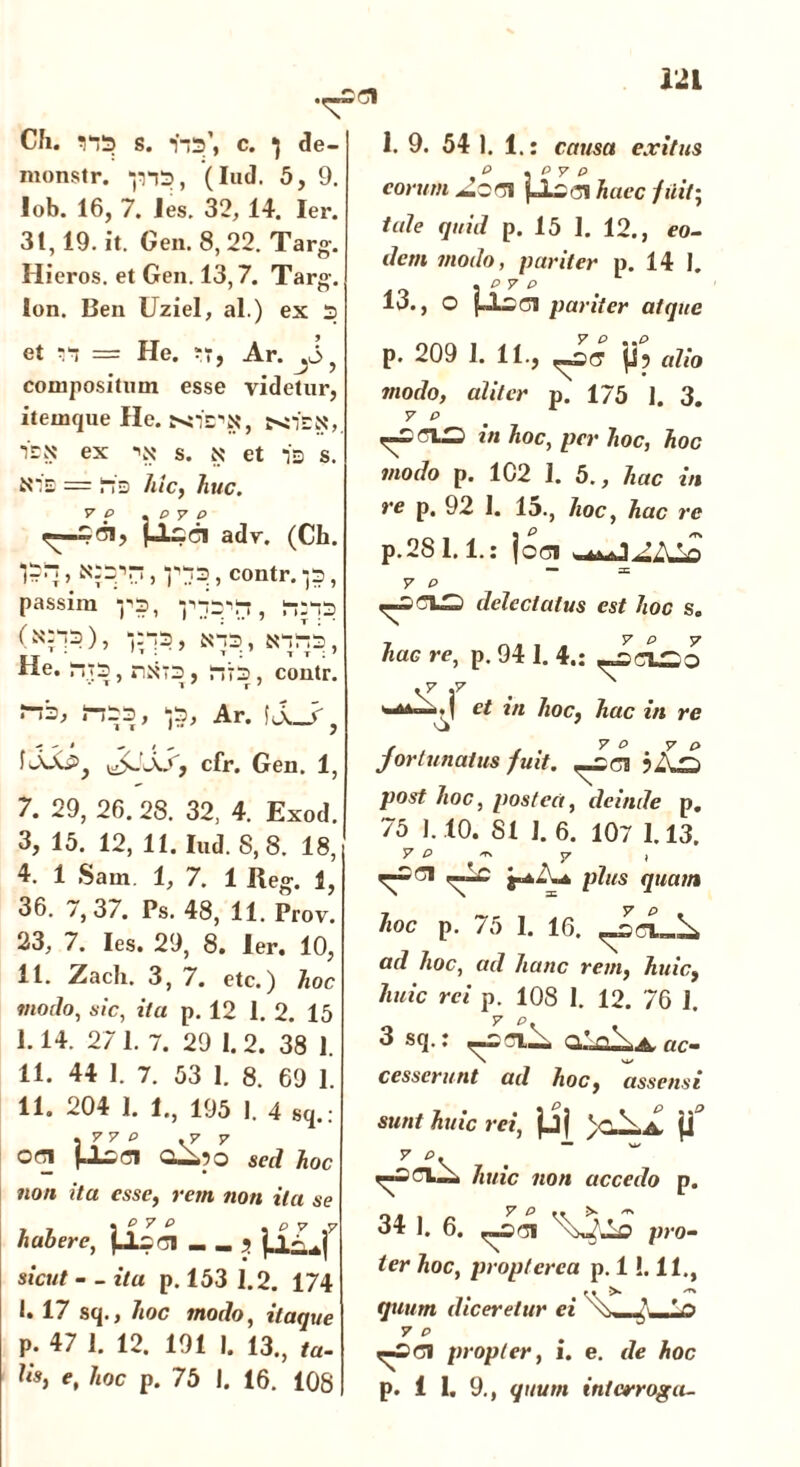 121
.ܗܟܢ
Ch. כְּדוּ s. כְּדוֹ, c. ן de-
monstr. כְּדוּן, (Iud. 5, 9.
Iob. 16, 7. Ies. 32, 14. Ier.
31, 19. it. Gen. 8, 22. Targ.
Hieros. et Gen. 13, 7. Targ.
Ion. Ben Uziel, al.) ex כְּ
et דּוּ = He. זוּ, Ar. ذو,
compositum esse videtur,
itemque He. אֵיפוֹא, אֵפוֹא,
אֵפוֹ ex אֵי s. אֵ et פוֹ s.
פּוֹא = פֹּה hic, huc.
ܗܟܢ, ܗܟܢܐ adv. (Ch.
הָכֵן, הֵיכְנָא, כְּדֵין, contr. כֵּן,
passim כֵּין, הֵיכְדֵין, כִּדְנָה
(כִּדְנָא), כְּדֵנַן, כְּדָא, כְּהָדָא,
He. כָּזֶה, כָּזֹאת, כָּזֹה, contr.
כֹּה, כָּכָה, כֵּן, Ar. كذا,
هكذا, كذلك, cfr. Gen. 1,
7. 29, 26. 28. 32, 4. Exod.
3, 15. 12, 11. Iud. 8, 8. 18,
4. 1 Sam. 1, 7. 1 Reg. 1,
36. 7, 37. Ps. 48, 11. Prov.
23, 7. Ies. 29, 8. Ier. 10,
11. Zach. 3, 7. etc.) hoc
modo, sic, ita p. 12 l. 2. 15
l. 14. 27 l. 7. 29 l. 2. 38 l.
11. 44 l. 7. 53 l. 8. 69 l.
11. 204 l. 1., 195 l. 4 sq.:
ܘܕܠܘ ܗܟܢܐ ܗܘ sed hoc
non ita esse, rem non ita se
habere, ܐܝܟܢܐ ܕ _ _ ܗܟܢܐ
sicut - - ita p. 153 l. 2. 174
l. 17 sq., hoc modo, itaque
p. 47 l. 12. 191 l. 13., ta-
lis, e, hoc p. 75 l. 16. 108
l. 9. 54 l. 1.: causa exitus
eorum ܗܟܢܐ ܗܘܬ haec fuit;
tale quid p. 15 l. 12., eo-
dem modo, pariter p. 14 l.
13., ܘ ܗܟܢܐ pariter atque
p. 209 l. 11., ܕܠܐ ܗܟܢ alio
modo, aliter p. 175 l. 3.
ܒܗܟܢ in hoc, per hoc, hoc
modo p. 102 l. 5., hac in
re p. 92 l. 15., hoc, hac re
p. 28 l. 1.: ܡܬܬܢܝܚ ܗܘܐ
ܒܗܟܢ delectatus est hoc s.
hac re, p. 94 l. 4.: ܘܒܗܟܢ
et in hoc, hac in re
fortunatus fuit. ܒܬܪ ܗܟܢ
post hoc, postea, deinde p.
75 l. 10. 81 l. 6. 107 l. 13.
ܝܬܝܪ ܡܢ ܗܟܢ plus quam
hoc p. 75 l. 16. ܠܗܟܢ
ad hoc, ad hanc rem, huic,
huic rei p. 108 l. 12. 76 l.
3 sq.: ܫܠܡܘ ܠܗܟܢ ac-
cesserunt ad hoc, assensi
sunt huic rei, ܠܐ ܫܠܡ ܐܢܐ
ܠܗܟܢ huic non accedo p.
34 l. 6. ܡܛܠ ܗܟܢ pro-
ter hoc, propterea p. 1 l. 11.,
quum diceretur ei ܡܛܠ
ܗܟܢ propter, i. e. de hoc
p. 1 l. 9., quum interroga-